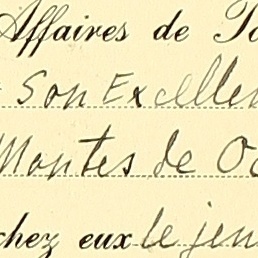 Affaires de
Son Excellen
Montes de Oc
chez eux le jeu